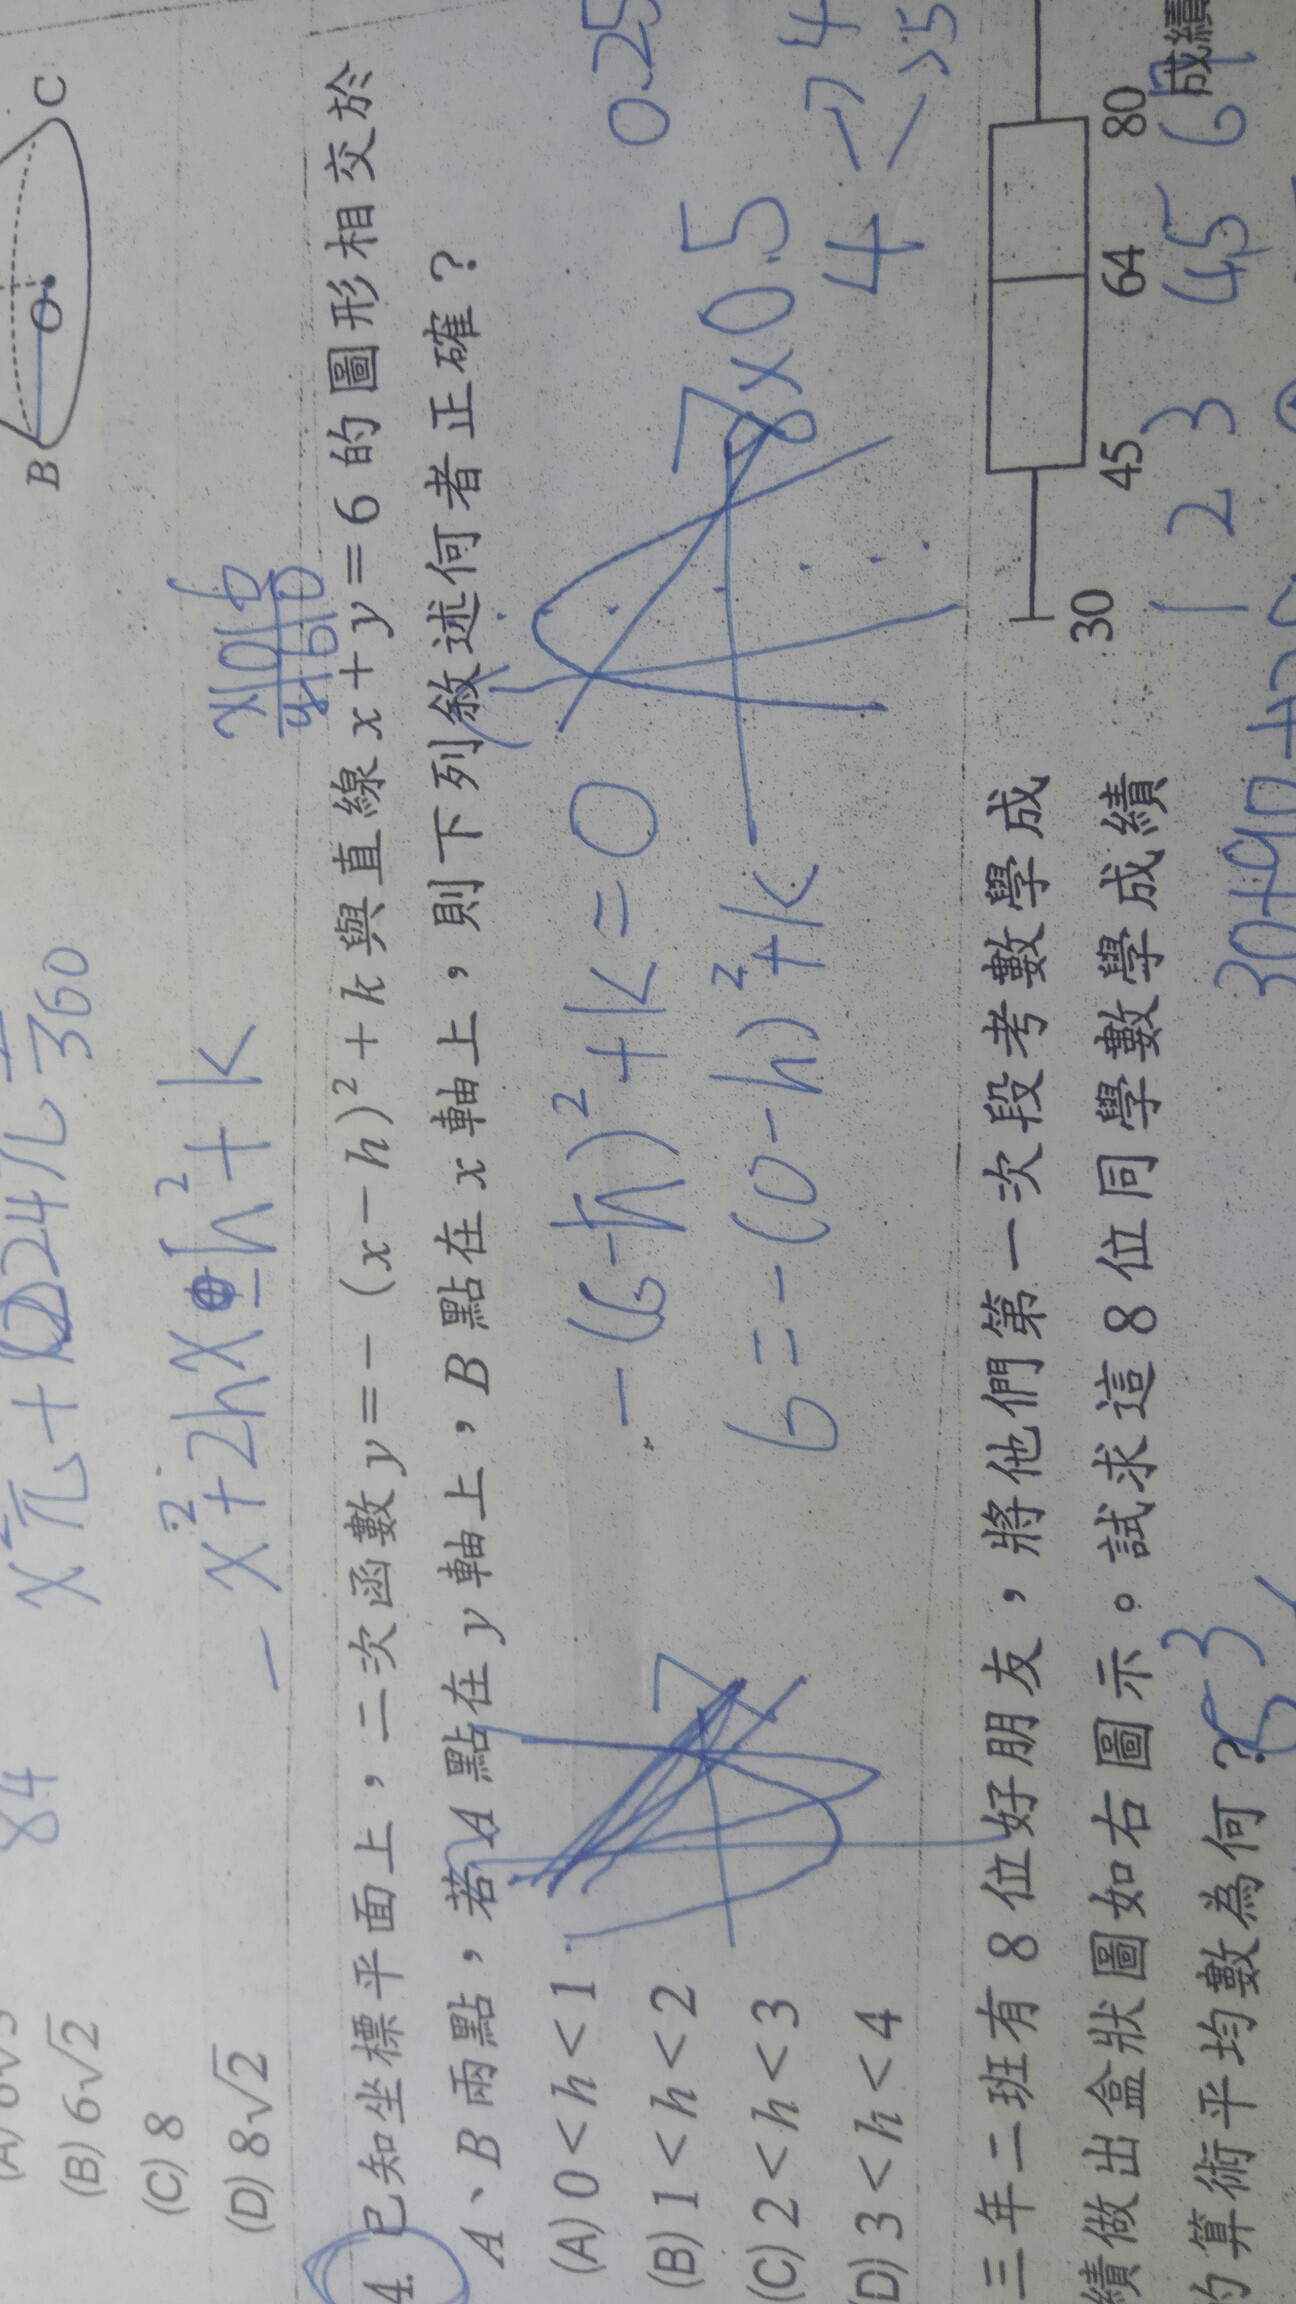 B O C
(B) 6√2
(C) 8
(D) 8√2
84
360
-x²+2hx-h²+k
4. 已知坐標平面上，二次函數 y=-(x-h)²+k 與直線 x+y=6 的圖形相交於
A、B 兩點，若 A 點在 y 軸上，B 點在 x 軸上，則下列敘述何者正確？
(A) 0<h<1
(B) 1<h<2
(C) 2<h<3
(D) 3<h<4
-(6-h)²+k=0
6=-(0-h)²+k
0.25
8×0.5
4
三年二班有 8 位好朋友，將他們第一次段考數學成
績做出盒狀圖如右圖示。試求這 8 位同學數學成績
的算術平均數為何？
30 45 64 80 成績
1 2 3 45 6 7
53
30+90+